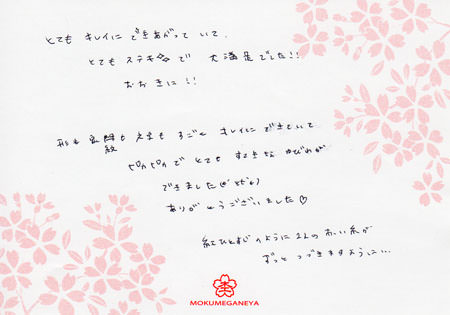 とても キレイに できあがって いて、
とても ステキ で 大満足でした!!
おおきに!!
形も 木目も すごく キレイに できていて
ぴかぴかで とても すてきな ゆびわが
できました
ありがとうございました♡
紅ひとすじ のように 2人の 赤い糸が
ずっと つづきますように…
杢
MOKUMEGANEYA